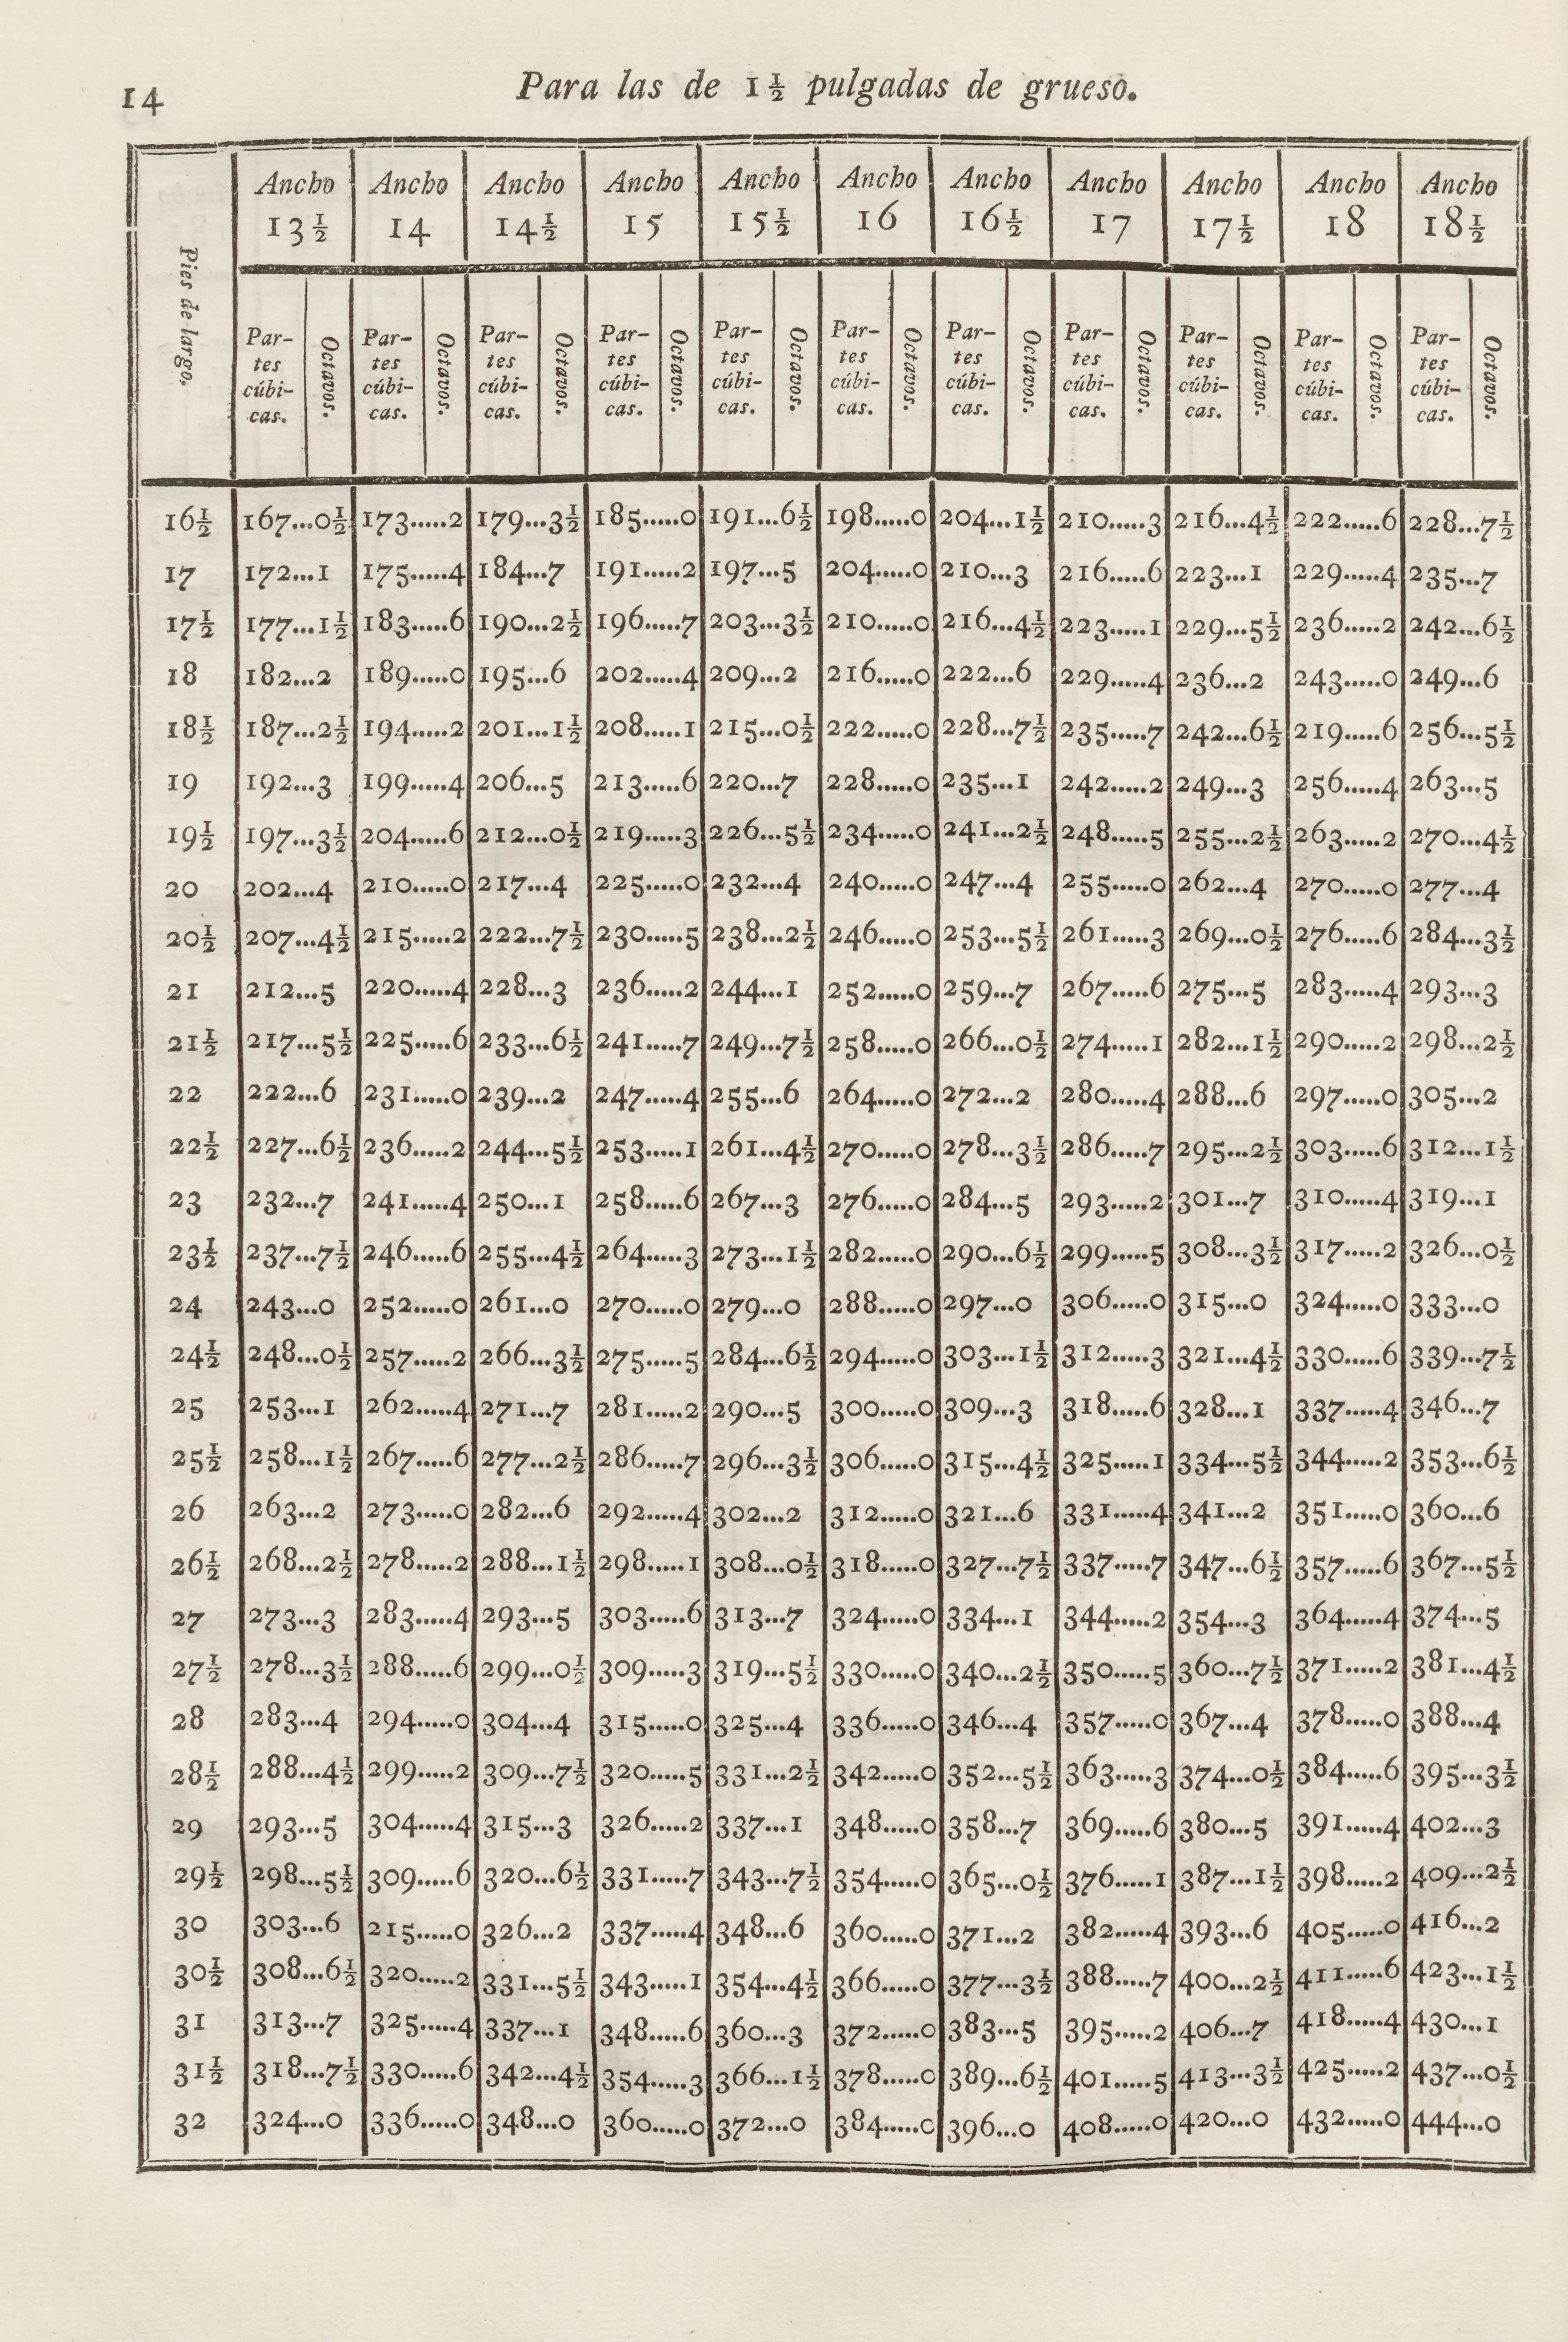 14
Para las de 1½ pulgadas de grueso.
Pies de largo. Ancho 13½ Ancho 14 Ancho 14½ Ancho 15 Ancho 15½ Ancho 16 Ancho 16½ Ancho 17 Ancho 17½ Ancho 18 Ancho 18½
Par-tes cúbi-cas. Octavos. Par-tes cúbi-cas. Octavos. Par-tes cúbi-cas. Octavos. Par-tes cúbi-cas. Octavos. Par-tes cúbi-cas. Octavos. Par-tes cúbi-cas. Octavos. Par-tes cúbi-cas. Octavos. Par-tes cúbi-cas. Octavos. Par-tes cúbi-cas. Octavos. Par-tes cúbi-cas. Octavos. Par-tes cúbi-cas. Octavos.
16½ 167...0½ 173.....2 179...3½ 185.....0 191...6½ 198.....0 204...1½ 210.....3 216...4½ 222.....6 228...7½
17 172...1 175.....4 184...7 191.....2 197...5 204.....0 210...3 216.....6 223...1 229.....4 235...7
17½ 177...1½ 183.....6 190...2½ 196.....7 203...3½ 210.....0 216...4½ 223.....1 229...5½ 236.....2 242...6½
18 182...2 189.....0 195...6 202.....4 209...2 216.....0 222...6 229.....4 236...2 243.....0 249...6
18½ 187...2½ 194.....2 201...1½ 208.....1 215...0½ 222.....0 228...7½ 235.....7 242...6½ 219.....6 256...5½
19 192...3 199.....4 206...5 213.....6 220...7 228.....0 235...1 242.....2 249...3 256.....4 263...5
19½ 197...3½ 204.....6 212...0½ 219.....3 226...5½ 234.....0 241...2½ 248.....5 255...2½ 263.....2 270...4½
20 202...4 210.....0 217...4 225.....0 232...4 240.....0 247...4 255.....0 262...4 270.....0 277...4
20½ 207...4½ 215.....2 222...7½ 230.....5 238...2½ 246.....0 253...5½ 261.....3 269...0½ 276.....6 284...3½
21 212...5 220.....4 228...3 236.....2 244...1 252.....0 259...7 267.....6 275...5 283.....4 293...3
21½ 217...5½ 225.....6 233...6½ 241.....7 249...7½ 258.....0 266...0½ 274.....1 282...1½ 290.....2 298...2½
22 222...6 231.....0 239...2 247.....4 255...6 264.....0 272...2 280.....4 288...6 297.....0 305...2
22½ 227...6½ 236.....2 244...5½ 253.....1 261...4½ 270.....0 278...3½ 286.....7 295...2½ 303.....6 312...1½
23 232...7 241.....4 250...1 258.....6 267...3 276.....0 284...5 293.....2 301...7 310.....4 319...1
23½ 237...7½ 246.....6 255...4½ 264.....3 273...1½ 282.....0 290...6½ 299.....5 308...3½ 317.....2 326...0½
24 243...0 252.....0 261...0 270.....0 279...0 288.....0 297...0 306.....0 315...0 324.....0 333...0
24½ 248...0½ 257.....2 266...3½ 275.....5 284...6½ 294.....0 303...1½ 312.....3 321...4½ 330.....6 339...7½
25 253...1 262.....4 271...7 281.....2 290...5 300.....0 309...3 318.....6 328...1 337.....4 346...7
25½ 258...1½ 267.....6 277...2½ 286.....7 296...3½ 306.....0 315...4½ 325.....1 334...5½ 344.....2 353...6½
26 263...2 273.....0 282...6 292.....4 302...2 312.....0 321...6 331.....4 341...2 351.....0 360...6
26½ 268...2½ 278.....2 288...1½ 298.....1 308...0½ 318.....0 327...7½ 337.....7 347...6½ 357.....6 367...5½
27 273...3 283.....4 293...5 303.....6 313...7 324.....0 334...1 344.....2 354...3 364.....4 374...5
27½ 278...3½ 288.....6 299...0½ 309.....3 319...5½ 330.....0 340...2½ 350.....5 360...7½ 371.....2 381...4½
28 283...4 294.....0 304...4 315.....0 325...4 336.....0 346...4 357.....0 367...4 378.....0 388...4
28½ 288...4½ 299.....2 309...7½ 320.....5 331...2½ 342.....0 352...5½ 363.....3 374...0½ 384.....6 395...3½
29 293...5 304.....4 315...3 326.....2 337...1 348.....0 358...7 369.....6 380...5 391.....4 402...3
29½ 298...5½ 309.....6 320...6½ 331.....7 343...7½ 354.....0 365...0½ 376.....1 387...1½ 398.....2 409...2½
30 303...6 215.....0 326...2 337.....4 348...6 360.....0 371...2 382.....4 393...6 405.....0 416...2
30½ 308...6½ 320.....2 331...5½ 343.....1 354...4½ 366.....0 377...3½ 388.....7 400...2½ 411.....6 423...1½
31 313...7 325.....4 337...1 348.....6 360...3 372.....0 383...5 395.....2 406...7 418.....4 430...1
31½ 318...7½ 330.....6 342...4½ 354.....3 366...1½ 378.....0 389...6½ 401.....5 413...3½ 425.....2 437...0½
32 324...0 336.....0 348...0 360.....0 372...0 384.....0 396...0 408.....0 420...0 432.....0 444...0